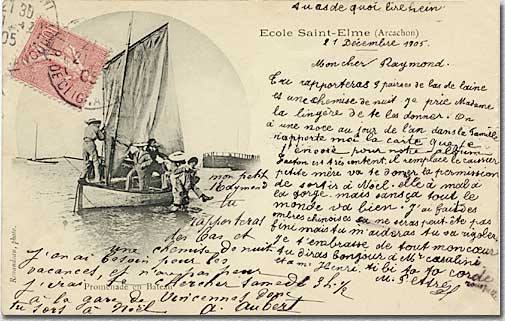 tu as de quoi lire hein
Ecole Saint-Elme (Arcachon)
21 Décembre 1905.
Mon cher Raymond.
Tu rapporteras 3 paires de bas de laine
et une chemise de nuit je prie Madame
la lingère de te les donner. On
a une noce au jour de l'an dans la famille
rapporte moi la carte que je
t'envoie pour notre album
Gaston est très content, il remplace le caissier
petite mère va te donner la permission
de sortir à Noël. elle a mal à
la gorge mais sans ça tout le
monde va bien. J'ai fait des
ombres chinoises ça ne sera peut-être pas
fini mais tu m'aideras tu va rigoler
Je t'embrasse de tout mon cœur
tu diras bonjour à Mr
et à Mr Henri.
mon petit
Raymond
tu
rapporteras
tes bas et
une chemise de nuit
j'en ai besoin pour les
vacances, et n'aie pas peur
j'irai te chercher samedi
à la gare de Vincennes donc
tu sors à Noël a. Aubert
Promenade en Bateau
photo.